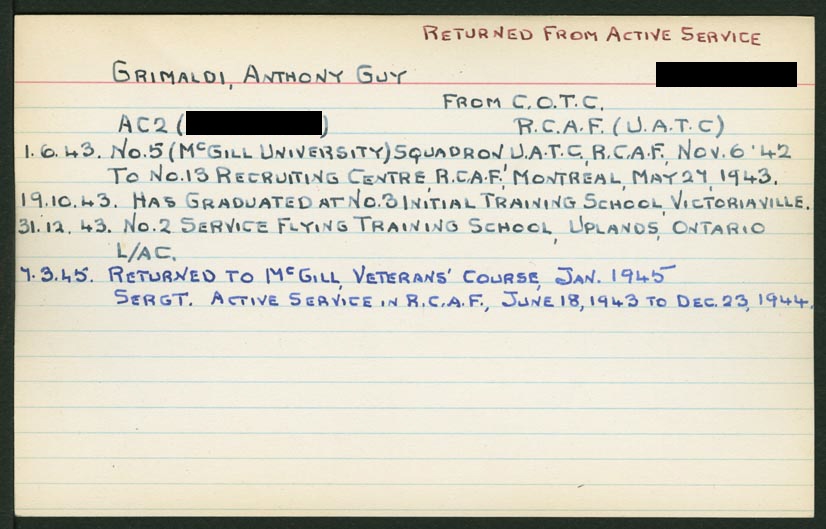 RETURNED FROM ACTIVE SERVICE
GRIMALDI, ANTHONY GUY
FROM C.O.T.C.
AC2 ( )
R.C.A.F. (U.A.T.C)
1.6.43. NO.5 (MCGILL UNIVERSITY) SQUADRON U.A.T.C, R.C.A.F, NOV. 6 '42
TO NO.13 RECRUITING CENTRE, R.C.A.F, MONTREAL, MAY 27, 1943.
19.10.43. HAS GRADUATED AT NO.3 INITIAL TRAINING SCHOOL, VICTORIAVILLE.
31.12.43. NO.2 SERVICE FLYING TRAINING SCHOOL, UPLANDS, ONTARIO
L/AC.
7.3.45. RETURNED TO MCGILL, VETERANS' COURSE, JAN. 1945
SERGT. ACTIVE SERVICE IN R.C.A.F., JUNE 18, 1943 TO DEC. 23, 1944.